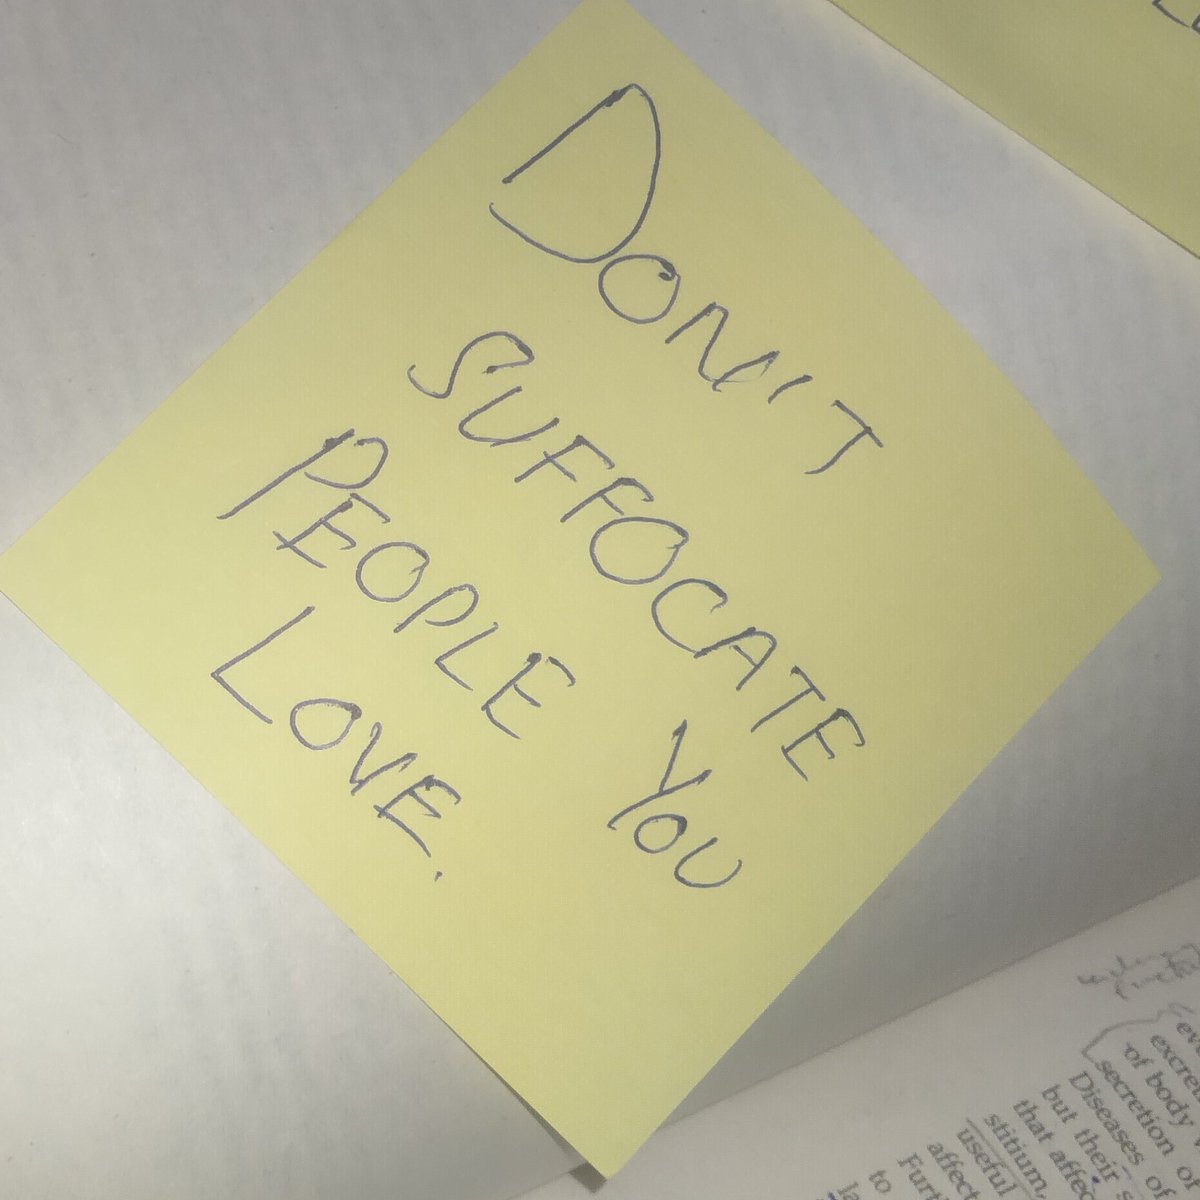 DON'T
SUFFOCATE
PEOPLE YOU
LOVE.
excre
of body
secretion of
Diseases of
but their
that affec
stitium
useful
affect
Furt
to
la